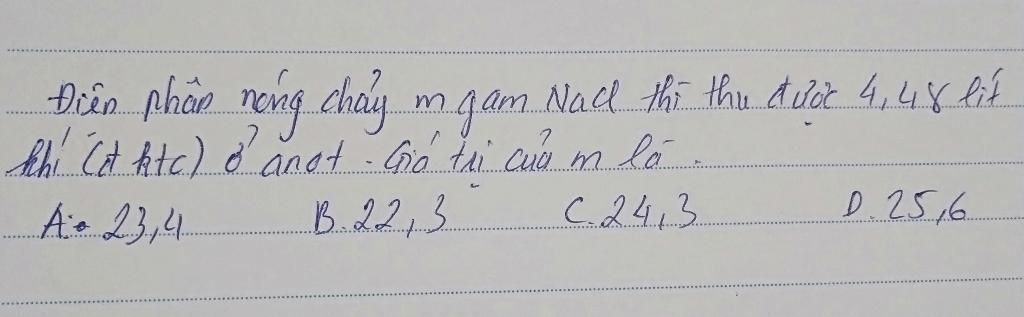 Điện phân nóng chảy m gam NaCl thì thu được 4,48 lít
khí (đktc) ở anot. Giá trị của m là.
A. 23,4 B. 22,3 C. 24,3 D. 25,6